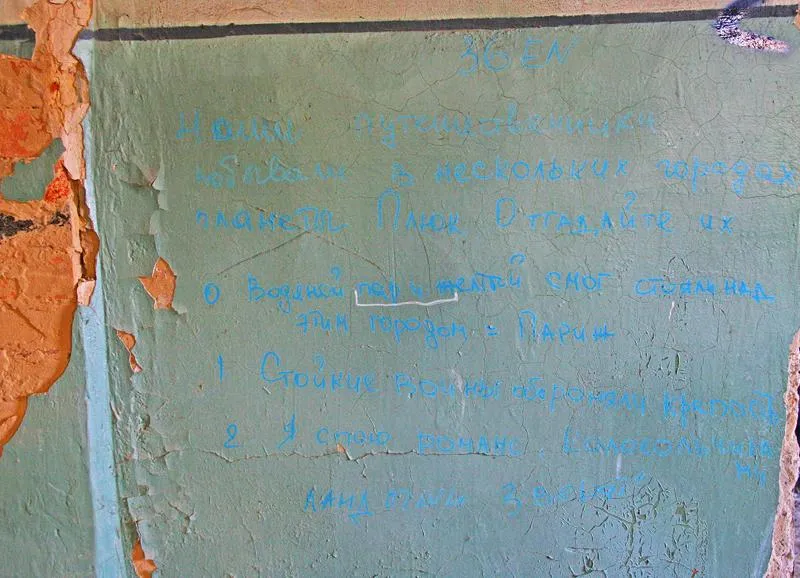 36 EN
Наши путешественники
побывали в нескольких городах
планеты Плюк Отгадайте их
0 Водяной пар и желтый смог стояли над
этим городом = Париж
1 Стойкие воины обороняли крепость
2 Я спою романс. Колокольчики